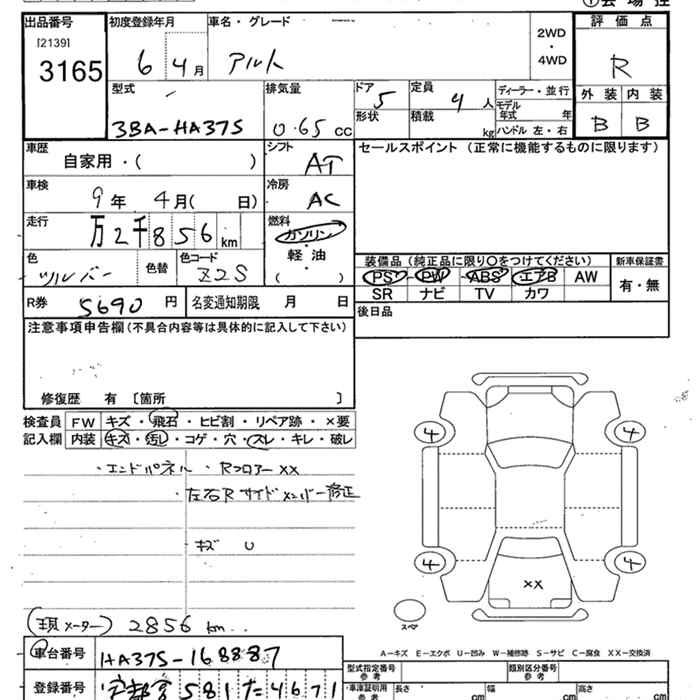 出品番号 初度登録年月 車名・グレード 2WD ・ 4WD 評価点
[2139]
3165 6 4月 アルト R
型式 排気量 ドア 5 定員 4人 ディーラー・並行 外装 内装
3BA-HA37S 0.65 cc 形状 積載 kg モデル年式 年 B B
ハンドル 左・右
車歴 自家用・( ) シフト AT セールスポイント (正常に機能するものに限ります)
車検 9年 4月( 日) 冷房 AC
走行 万2千856km 燃料 ガソリン・軽油 ( )
色 シルバー 色替 色コード Z2S
装備品 (純正品に限り○をつけてください) 新車保証書
PS PW ABS エアB AW 有・無
SR ナビ TV カワ
R券 5690円 名変通知期限 月 日 後日品
注意事項申告欄(不具合内容等は具体的に記入して下さい)
修復歴 有 〔箇所 〕
検査員記入欄 FW キズ・飛石・ヒビ割・リペア跡・×要
内装 キズ・汚レ・コゲ・穴・スレ・キレ・破レ
・エンドパネル ・Rフロアー XX
・左右Rサイドメンバー修正
キズ U
4 4
4 4
XX
スペア
(現メーター) 2856 km
A-キズ E-エクボ U-凹み W-補修跡 S-サビ C-腐食 XX-交換済
車台番号 HA37S-168887
型式指定番号 参考 類別区分番号 参考
登録番号 宇都宮 581 た 4671
車庫証明用 参考 長さ cm 幅 cm 高さ cm